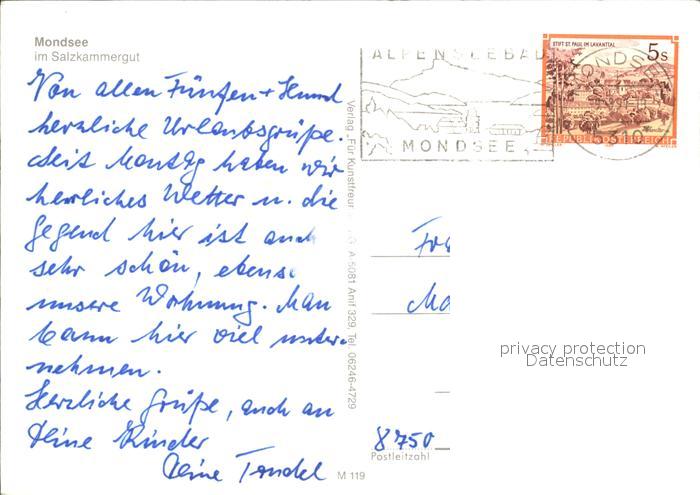 Mondsee
im Salzkammergut
Von allen Fünfen + Hund
herzliche Urlaubsgrüße.
Seit Montag haben wir
herrliches Wetter u. die
Gegend hier ist auch
sehr schön, ebenso
unsere Wohnung. Man
kann hier viel unter-
nehmen.
Herzliche Grüße, auch an
Deine Kinder
Deine
M 119
Verlag „Für Kunstfreu
A 5081 Anif 329, Tel. 06246-4729
ALPENSEEBAD
MONDSEE
STIFT ST. PAUL IM LAVANTTAL
5s
REPUBLIK ÖSTERREICH
MONDSEE
5310
8750
Postleitzahl
privacy protection
Datenschutz